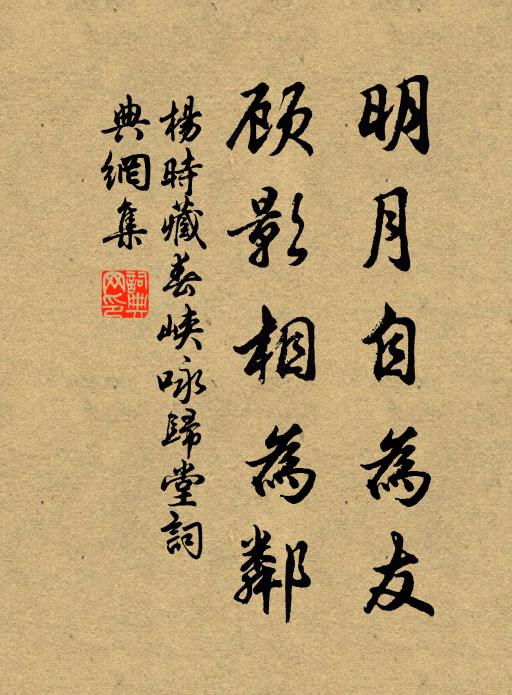 明月自為友
顾影相為鄰
楊時藏春峽咏歸堂詞
典網集
詞典网印